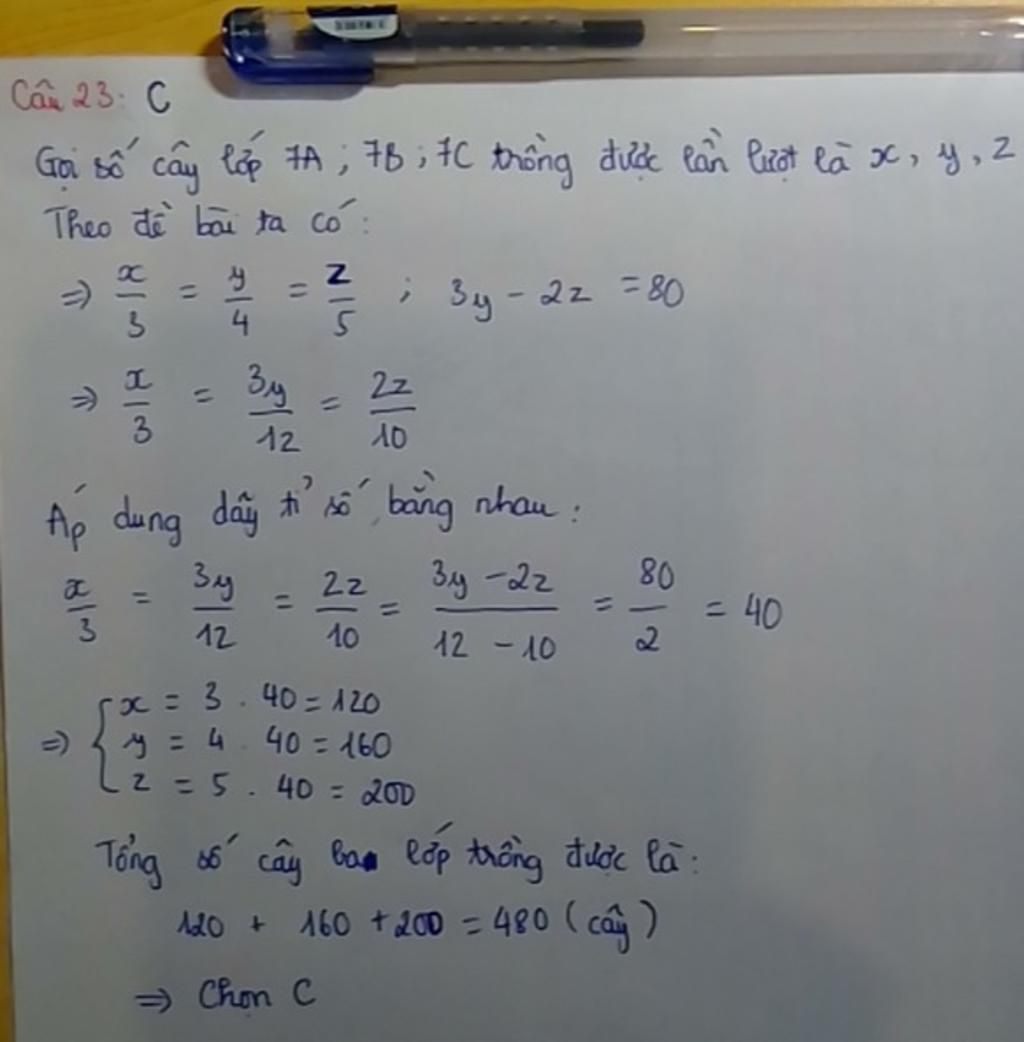 Câu 23: C
Gọi số cây lớp 7A ; 7B ; 7C trồng được lần lượt là x, y, z
Theo đề bài ta có:
=> x/3 = y/4 = z/5 ; 3y - 2z = 80
=> x/3 = 3y/12 = 2z/10
Áp dung dãy tỉ số bằng nhau:
x/3 = 3y/12 = 2z/10 = (3y - 2z)/(12 - 10) = 80/2 = 40
=> { x = 3 . 40 = 120
y = 4 . 40 = 160
z = 5 . 40 = 200
Tổng số cây ba lớp trồng được là:
120 + 160 + 200 = 480 (cây)
=> Chọn C